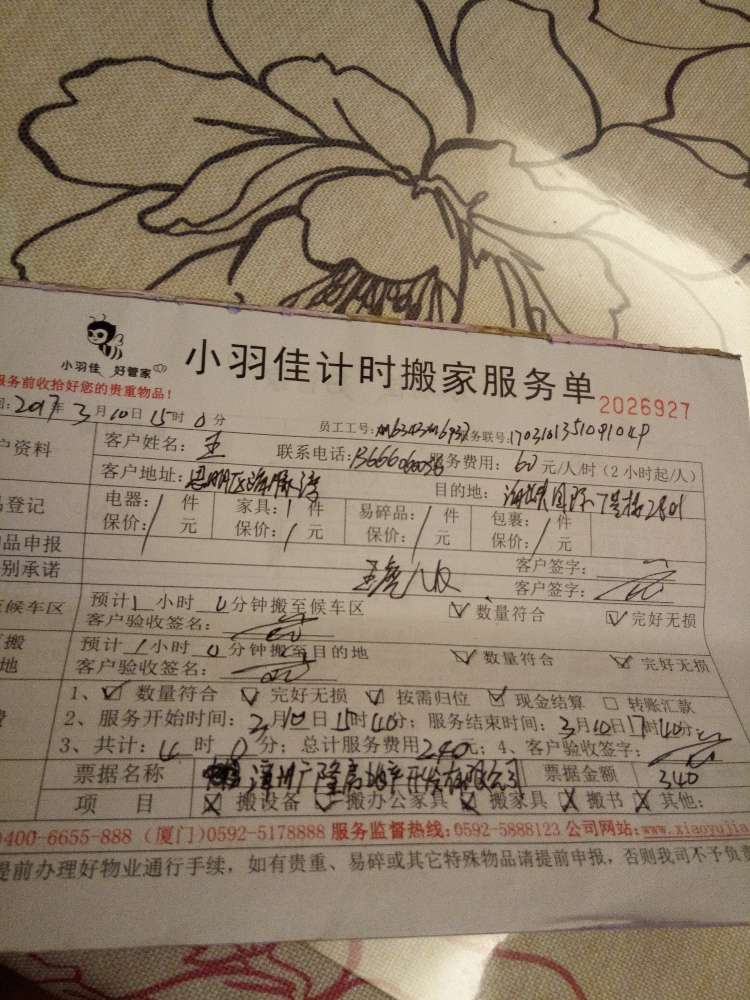 小羽佳 好管家
小羽佳计时搬家服务单
2026927
服务前收拾好您的贵重物品!
2017年3月10日15时0分
员工工号:
服务联号:
户资料
客户姓名:王
联系电话:
服务费用:60元/人/时(2小时起/人)
客户地址:思明区
目的地:
品登记
电器:/件 家具:1件 易碎品:/件 包裹:/件
保价:/元 保价:/元 保价:/元 保价:/元
品申报
客户签字:
别承诺
客户签字:
候车区
预计1小时0分钟搬至候车区
数量符合 完好无损
客户验收签名:
搬
地
预计1小时0分钟搬至目的地
数量符合 完好无损
客户验收签名:
1、数量符合 完好无损 按需归位 现金结算 转账汇款
2、服务开始时间:3月10日15时40分;服务结束时间:3月10日17时40分;
3、共计:4时0分;总计服务费用240元;4、客户验收签字:
票据名称
票据金额 340
项 目 搬设备 搬办公家具 搬家具 搬书 其他:
400-6655-888 (厦门)0592-5178888 服务监督热线:0592-5888123 公司网站:www.xiaoyujia
提前办理好物业通行手续,如有贵重、易碎或其它特殊物品请提前申报,否则我司不予负责